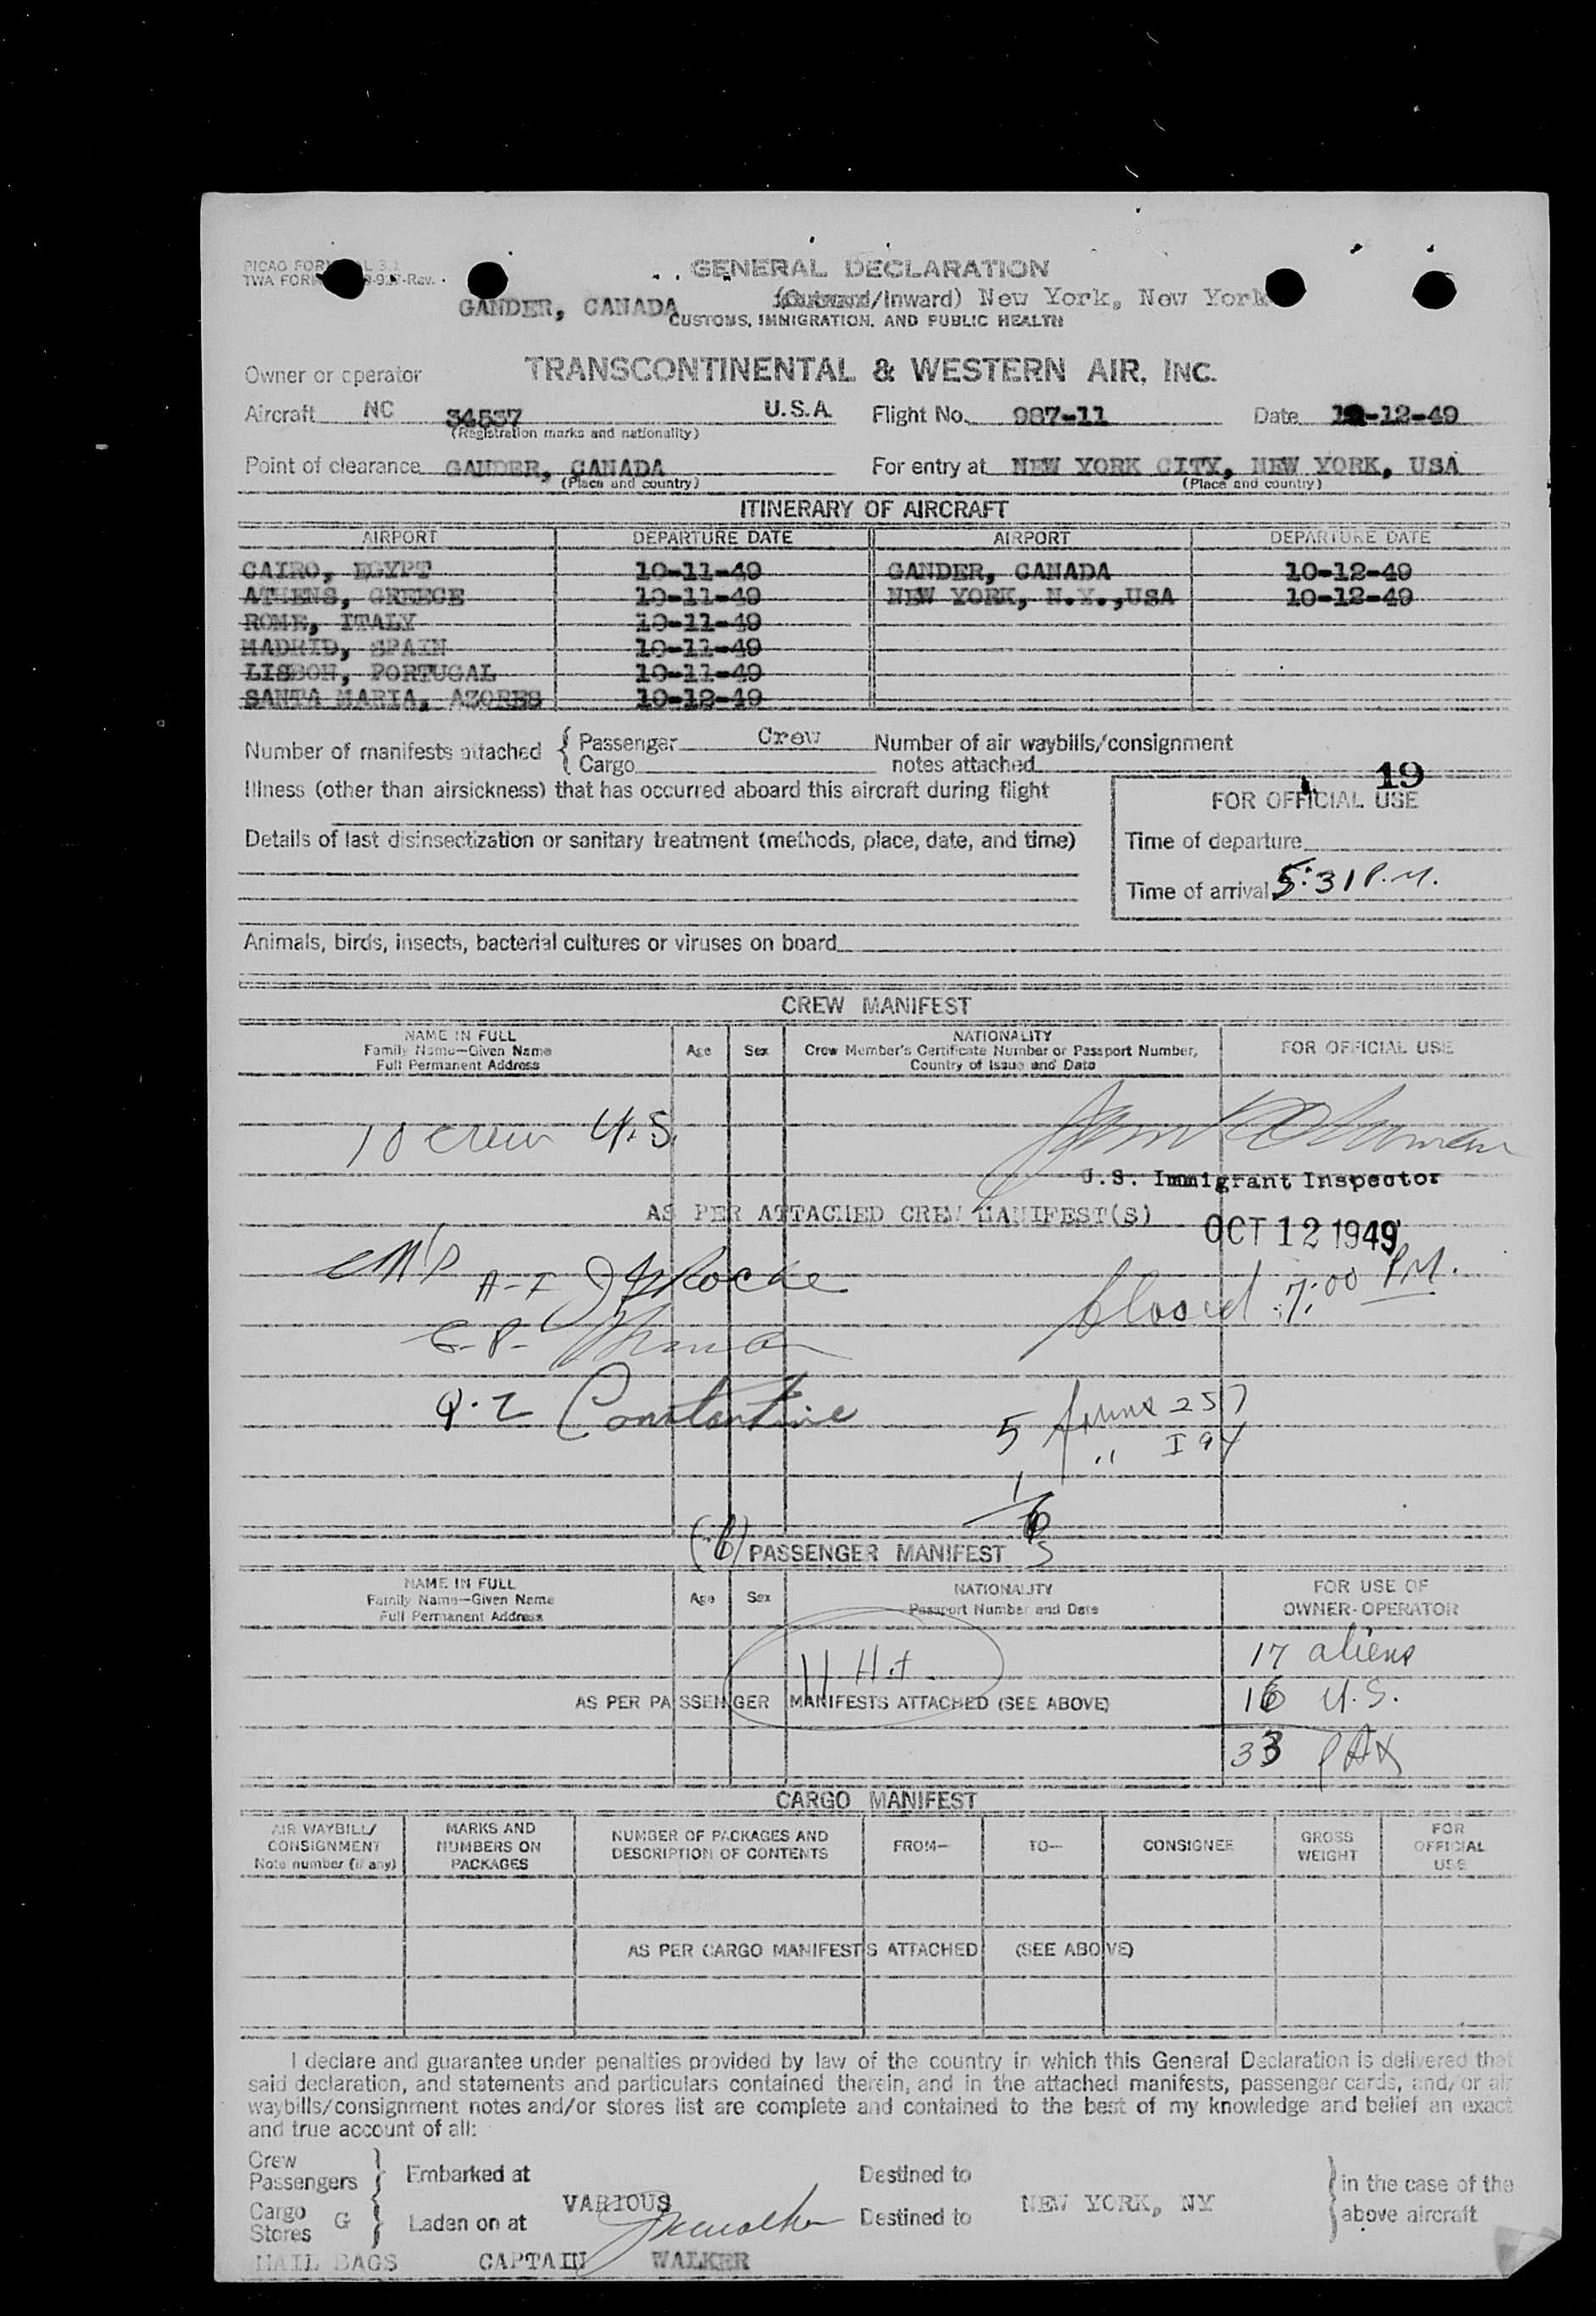 PICAO FORM
TWA FORM -Rev.
GENERAL DECLARATION
(Outward/Inward) New York, New York
GANDER, CANADA
CUSTOMS, IMMIGRATION, AND PUBLIC HEALTH
Owner or operator TRANSCONTINENTAL & WESTERN AIR, INC.
Aircraft NC 34537 U.S.A. Flight No. 987-11 Date 10-12-49
(Registration marks and nationality)
Point of clearance GANDER, CANADA For entry at NEW YORK CITY, NEW YORK, USA
(Place and country) (Place and country)
ITINERARY OF AIRCRAFT
AIRPORT DEPARTURE DATE AIRPORT DEPARTURE DATE
CAIRO, EGYPT 10-11-49 GANDER, CANADA 10-12-49
ATHENS, GREECE 10-11-49 NEW YORK, N.Y.,USA 10-12-49
ROME, ITALY 10-11-49
MADRID, SPAIN 10-11-49
LISBON, PORTUGAL 10-11-49
SANTA MARIA, AZORES 10-12-49
Number of manifests attached { Passenger Crew Number of air waybills/consignment
Cargo notes attached
19
Illness (other than airsickness) that has occurred aboard this aircraft during flight
FOR OFFICIAL USE
Details of last disinsectization or sanitary treatment (methods, place, date, and time)
Time of departure
Time of arrival 5:31 P.M.
Animals, birds, insects, bacterial cultures or viruses on board
CREW MANIFEST
NAME IN FULL
Family Name—Given Name
Full Permanent Address
Age Sex
NATIONALITY
Crew Member's Certificate Number or Passport Number,
Country of Issue and Date
FOR OFFICIAL USE
10 crew U.S.
U.S. Immigrant Inspector
AS PER ATTACHED CREW MANIFEST(S)
OCT 12 1949
closed 7:00 P.M.
Constantine
5 forms 257
1 " I 94
6
(6) PASSENGER MANIFEST S
NAME IN FULL
Family Name—Given Name
Full Permanent Address
Age Sex
NATIONALITY
Passport Number and Date
FOR USE OF
OWNER-OPERATOR
17 aliens
16 U.S.
AS PER PASSENGER MANIFESTS ATTACHED (SEE ABOVE)
33 PAX
CARGO MANIFEST
AIR WAYBILL/
CONSIGNMENT
Note number (if any)
MARKS AND
NUMBERS ON
PACKAGES
NUMBER OF PACKAGES AND
DESCRIPTION OF CONTENTS
FROM— TO— CONSIGNEE
GROSS
WEIGHT
FOR
OFFICIAL
USE
AS PER CARGO MANIFESTS ATTACHED (SEE ABOVE)
I declare and guarantee under penalties provided by law of the country in which this General Declaration is delivered that
said declaration, and statements and particulars contained therein, and in the attached manifests, passenger cards, and/or air
waybills/consignment notes and/or stores list are complete and contained to the best of my knowledge and belief an exact
and true account of all:
Crew
Passengers } Embarked at Destined to
VARIOUS NEW YORK, NY
Cargo
Stores G } Laden on at Destined to
in the case of the
above aircraft
MAIL BAGS CAPTAIN WALKER